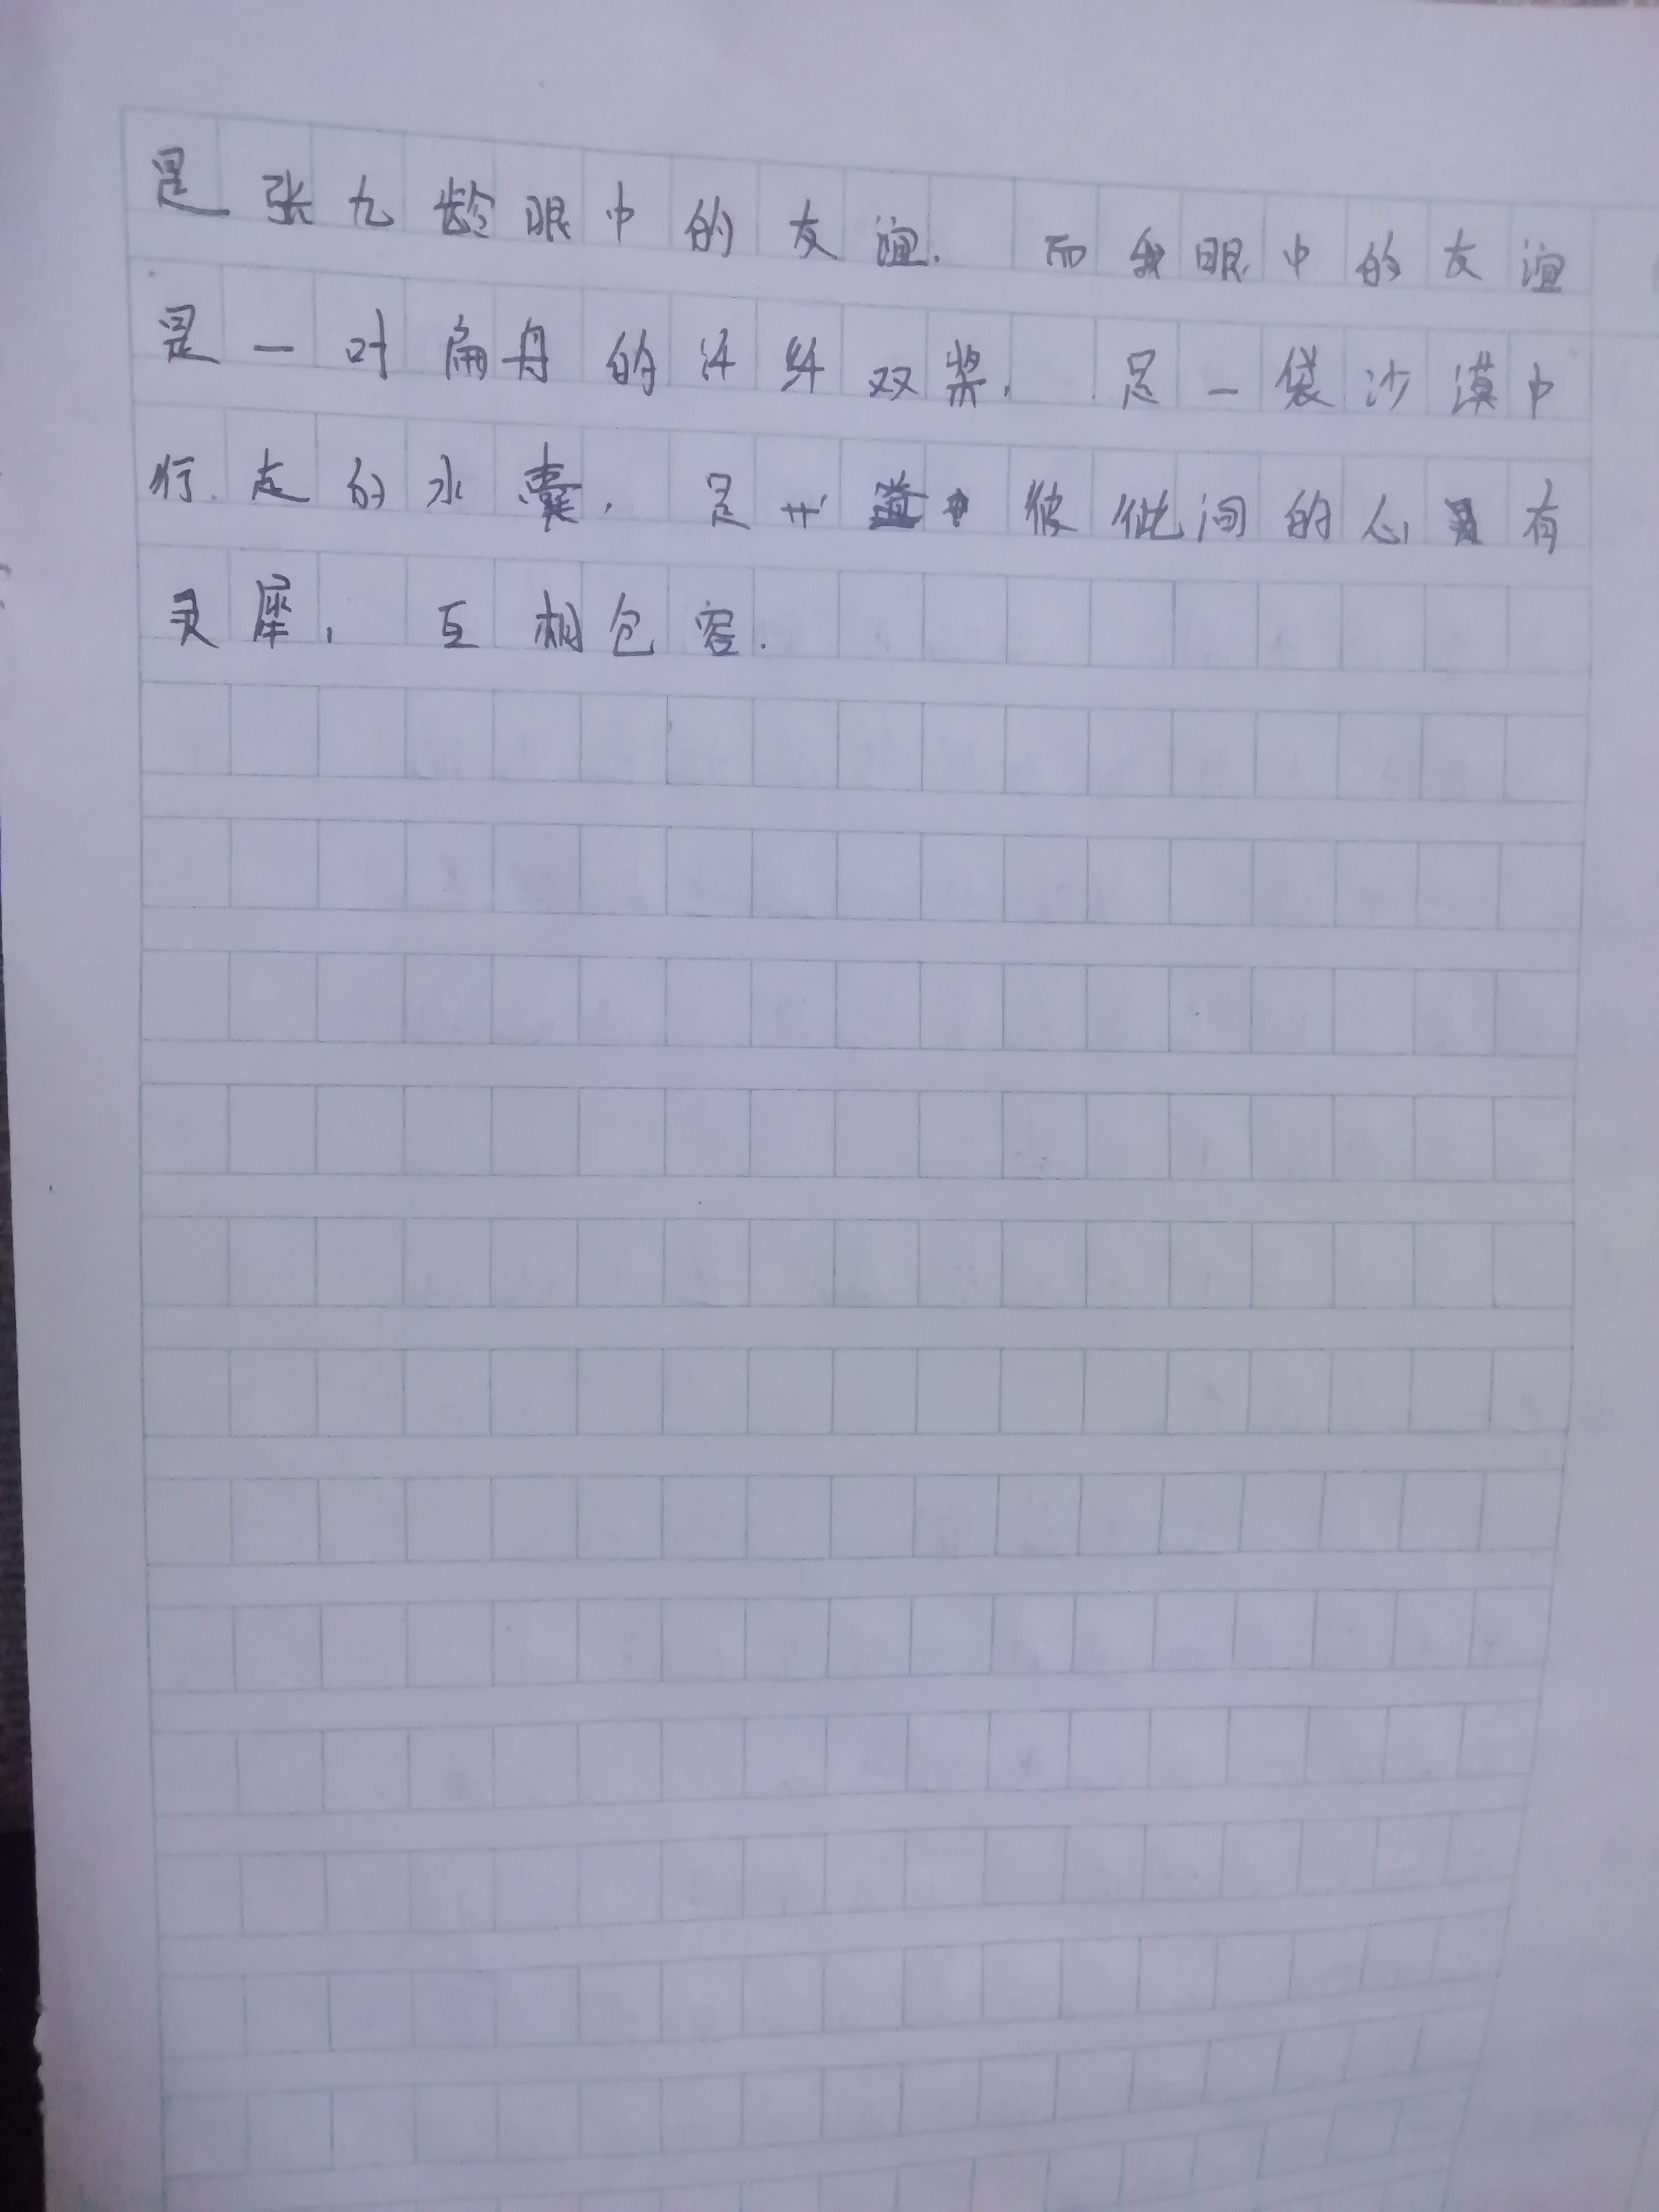 是张九龄眼中的友谊.而我眼中的友谊
是一叶扁舟的纤纤双桨.是一袋沙漠中
行走的水囊,是彼此间的心有
灵犀,互相包容.